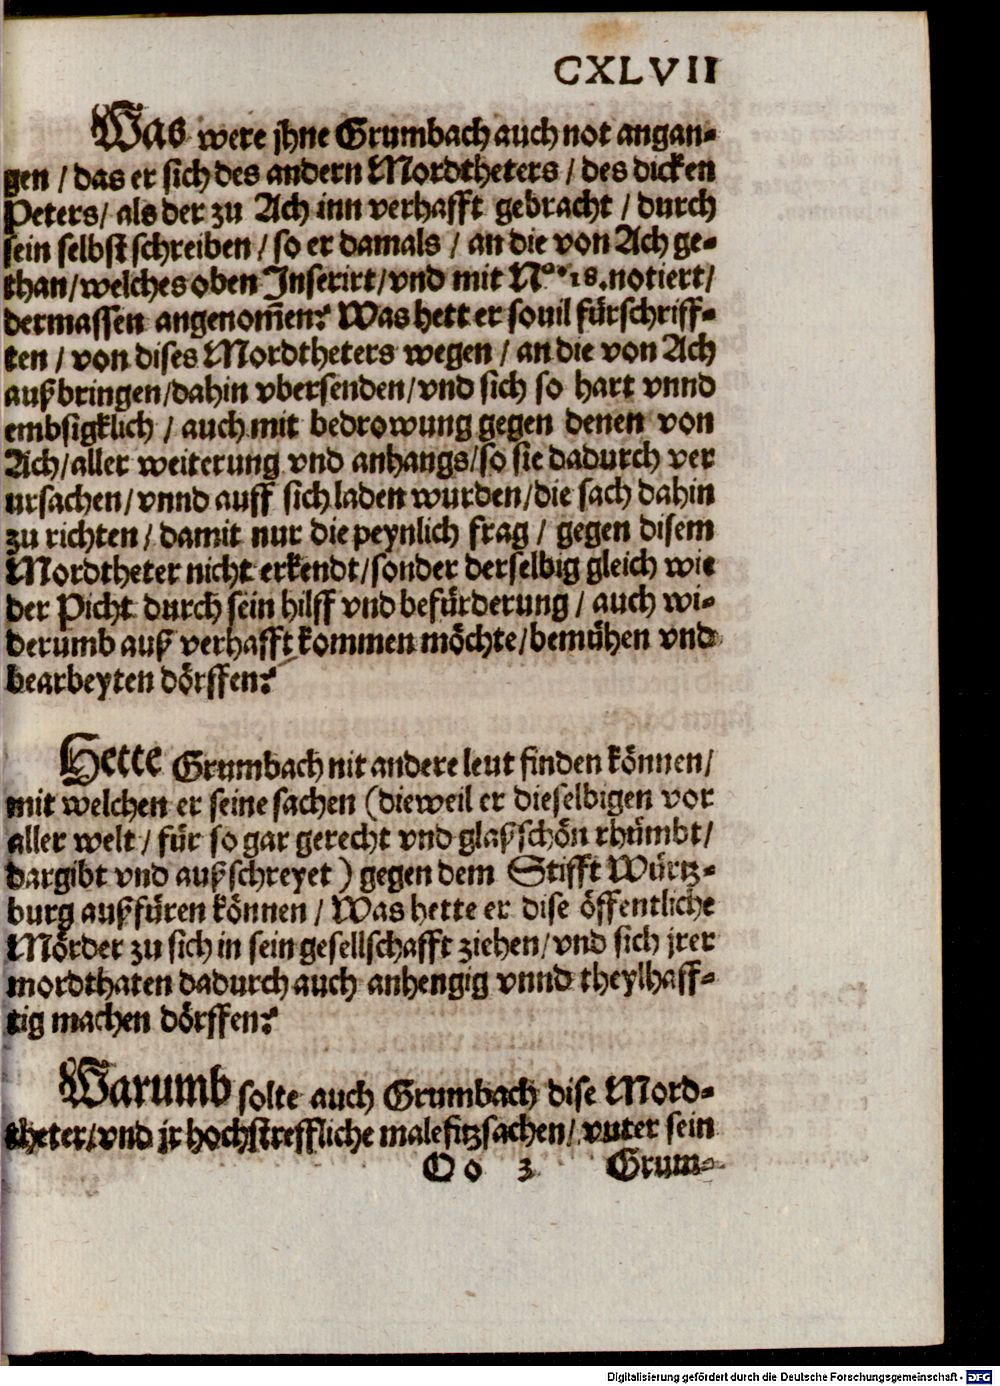 CXLVII
Was were jhne Grumbach auch not angan-
gen / das er sich des andern Mordtheters / des dicken
Peters / als der zu Ach inn verhafft gebracht / durch
sein selbst schreiben / so er damals / an die von Ach ge-
than / welches oben Inserirt / vnd mit Nº. 18. notiert /
dermassen angenom̃en? Was hett er souil fürschriff-
ten / von dises Mordtheters wegen / an die von Ach
außbringen / dahin vbersenden / vnd sich so hart vnnd
embsigklich / auch mit bedrowung gegen denen von
Ach / aller weiterung vnd anhangs / so sie dadurch ver
ursachen / vnnd auff sich laden wurden / die sach dahin
zu richten / damit nur die peynlich frag / gegen disem
Mordtheter nicht erkendt / sonder derselbig gleich wie
der Picht durch sein hilff vnd befürderung / auch wi-
derumb auß verhafft kommen möchte / bemühen vnd
bearbeyten dörffen?
Hette Grumbach nit andere leut finden können /
mit welchen er seine sachen (dieweil er dieselbigen vor
aller welt / für so gar gerecht vnd glaßschön rhümbt /
dargibt vnd außschreyet) gegen dem Stifft Würtz-
burg außfüren können / Was hette er dise öffentliche
Mörder zu sich in sein gesellschafft ziehen / vnd sich jrer
mordthaten dadurch auch anhengig vnnd theylhaff-
tig machen dörffen?
Warumb solte auch Grumbach dise Mord-
theter / vnd jr hochstreffliche malefitzsachen / vnter sein
Oo 3 Grum-
Digitalisierung gefördert durch die Deutsche Forschungsgemeinschaft - DFG